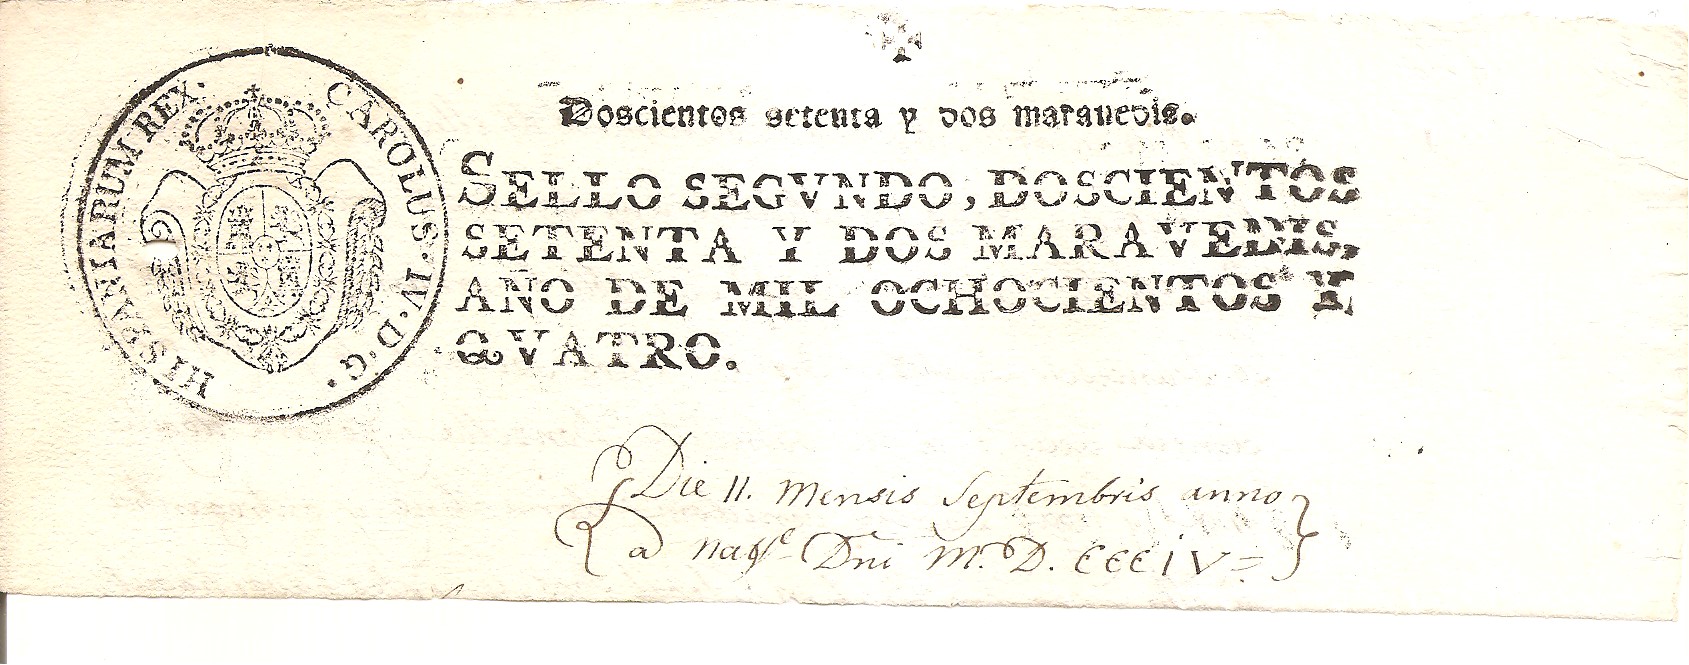 CAROLUS·IV·D·G· HISPANIARUM REX·
Doscientos setenta y dos maravedis.
SELLO SEGVNDO, DOSCIENTOS
SETENTA Y DOS MARAVEDIS,
AÑO DE MIL OCHOCIENTOS Y
QVATRO.
Die 11. mensis Septembris anno
a Dni M.D.CCCIV=